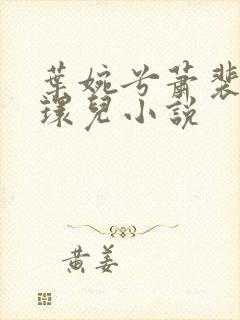 葉婉兮蕭裴
環兒小説
黃姜